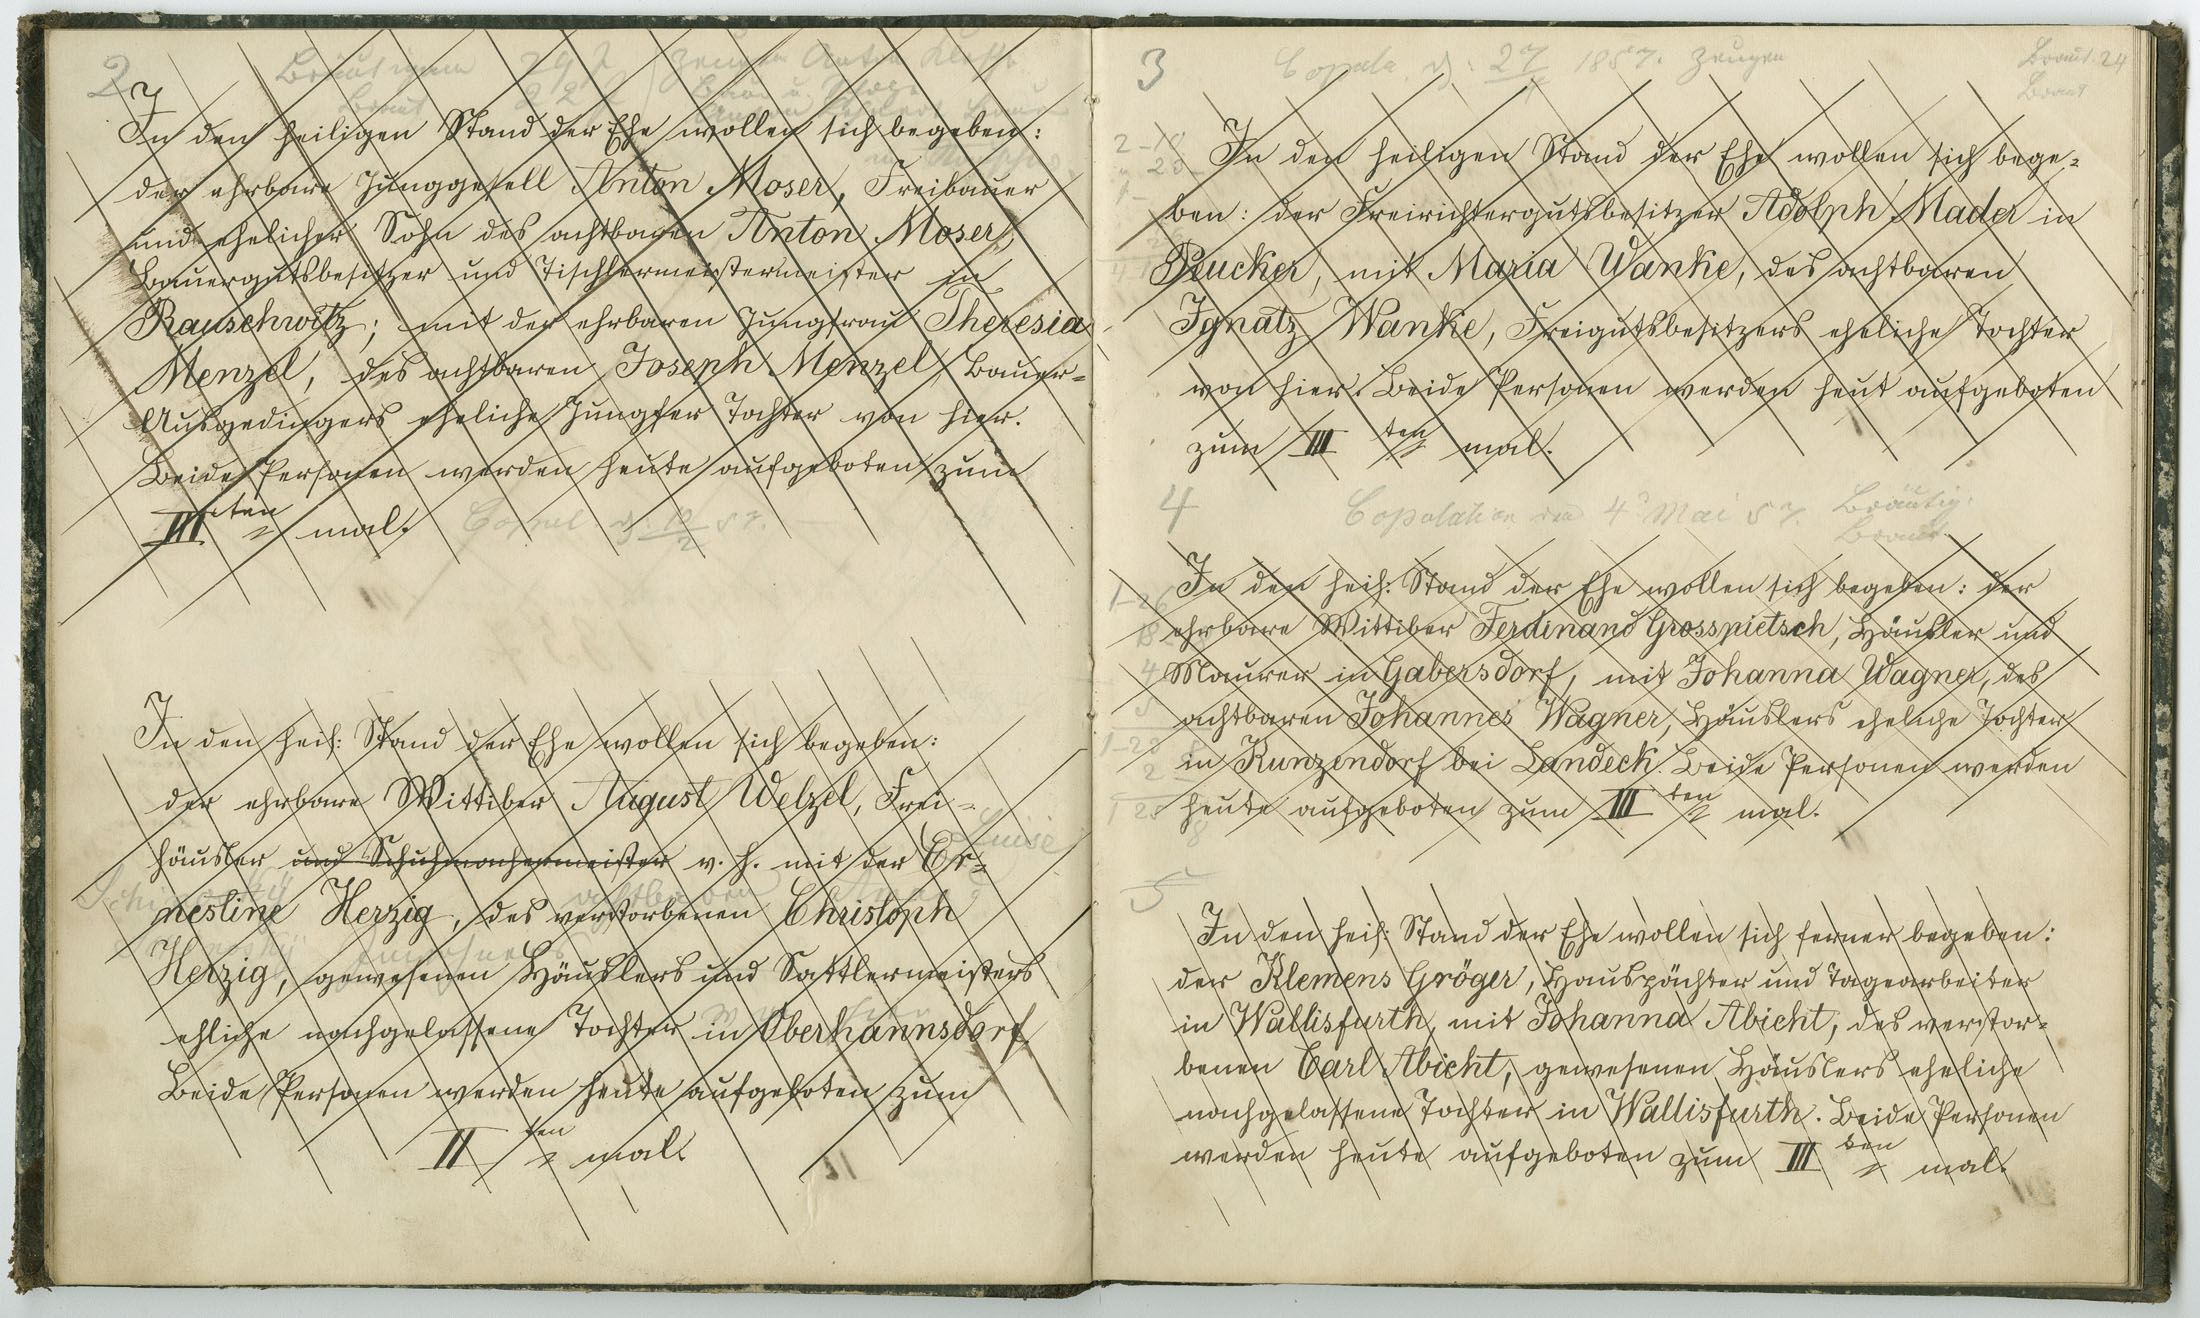 2
Bräutigam 29 J Zeugen Anton
Braut 22 J
In den heiligen Stand der Ehe wollen sich begeben:
der ehrbare Junggesell Anton Moser, Freibauer
und ehelicher Sohn des achtbaren Anton Moser,
Bauergutsbesitzer und Tischlermeistermeister in
Rauschwitz; mit der ehrbaren Jungfrau Theresia
Menzel, des achtbaren Joseph Menzel, Bauer-
Ausgedingers eheliche Jungfer Tochter von hier.
Beide Personen werden heute aufgeboten zum
III ten mal.
Copul. d. 10/2 57.
In den heil: Stand der Ehe wollen sich begeben:
der ehrbare Wittiber August Welzel, Frei-
häusler und Schuhmachermeister v. h. mit der Er-
Luise
achtbaren
nestine Herzig, des verstorbenen Christoph
Herzig, gewesenen Häuslers und Sattlermeisters
ehliche nachgelassene Tochter in Oberhannsdorf.
Beide Personen werden heute aufgeboten zum
II ten mal.
3
Copula. d: 27 1857. Zeugen
Bräut. 24
Braut
In den heiligen Stand der Ehe wollen sich bege-
ben: der Freirichtergutsbesitzer Adolph Mader in
Peucker, mit Maria Wanke, des achtbaren
Ignatz Wanke, Freigutsbesitzers eheliche Tochter
von hier. Beide Personen werden heut aufgeboten
zum III ten mal.
4
Copolation den 4 Mai 57. Bräutig.
Braut
In den heil: Stand der Ehe wollen sich begeben: der
ehrbare Wittiber Ferdinand Grosspietsch, Häusler und
Maurer in Gabersdorf, mit Johanna Wagner, des
achtbaren Johannes Wagner, Häuslers eheliche Tochter
in Kunzendorf bei Landeck. Beide Personen werden
heute aufgeboten zum III ten mal.
5
In den heil: Stand der Ehe wollen sich ferner begeben:
der Klemens Gröger, Hauspächter und Tagearbeiter
in Wallisfurth, mit Johanna Abicht, des verstor-
benen Carl Abicht, gewesenen Häuslers eheliche
nachgelassene Tochter in Wallisfurth. Beide Personen
werden heute aufgeboten zum III ten mal.